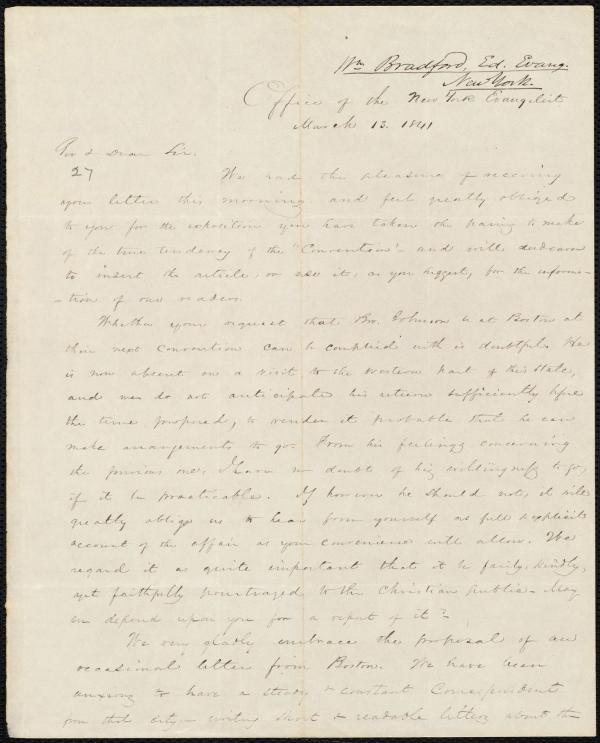 Wm Bradford, Ed. Evang.
New York.
Office of the New York Evangelist
March 13. 1841
Rev & Dear Sir.
27
We had the pleasure of receiving
your letter this morning and feel greatly obliged
to you for the exposition you have taken the pains to make
of the true tendency of the "Convention" - and will endeavor
to insert the article, or use it, as you suggest, for the informa-
-tion of our readers.
Whether your request that Bro. Johnson be at Boston at
their next Convention can be complied with is doubtful. He
is now absent on a visit to the western part of this State,
and we do not anticipate his return sufficiently before
the time proposed, to render it probable that he can
make arrangements to go. From his feelings concerning
the previous one, I have no doubt of his willingness to go,
if it be practicable. If however he should not, it will
greatly oblige us to hear from yourself as full & explicit
account of the affair as your convenience will allow. We
regard it as quite important that it be fairly, kindly,
yet faithfully pourtrayed to the Christian public - May
we depend upon you for a report of it?
We very gladly embrace the proposal of an
occasional letter from Boston. We have been
anxious to have a steady & constant Correspondent
from that city - writing short & readable letters about the